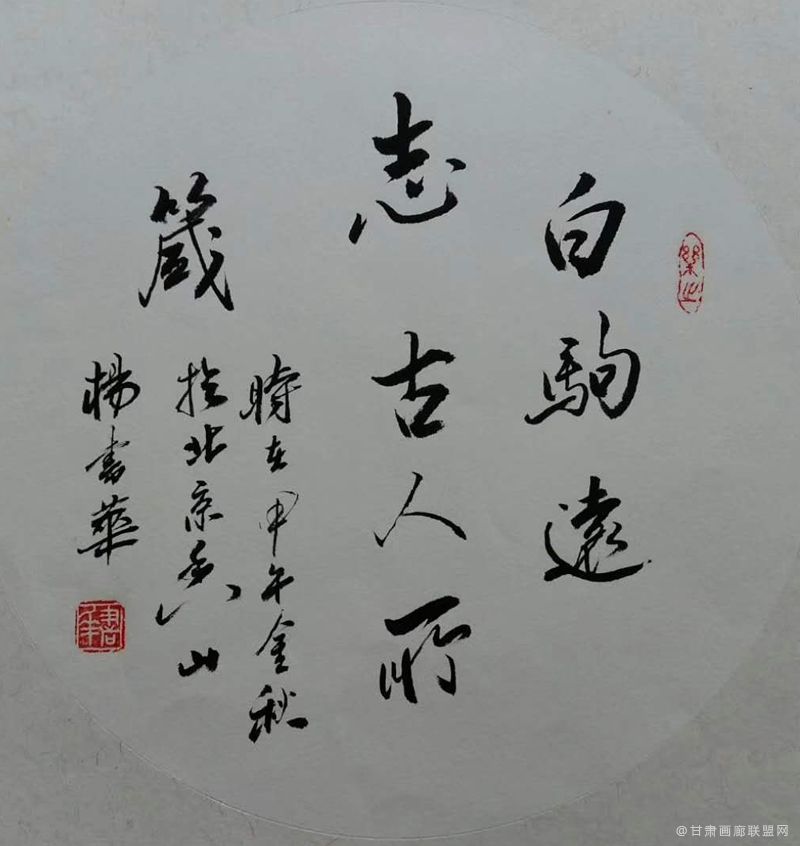 白駒遠
志古人所
箴
時在甲午金秋
於北京香山
楊書華
書華
@甘肃画廊联盟网